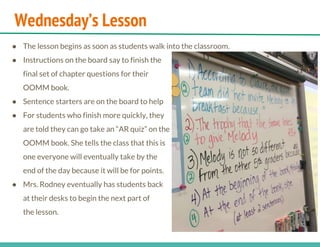 Wednesday's Lesson
● The lesson begins as soon as students walk into the classroom.
● Instructions on the board say to finish the
final set of chapter questions for their
OOMM book.
● Sentence starters are on the board to help
● For students who finish more quickly, they
are told they can go take an "AR quiz" on the
OOMM book. She tells the class that this is
one everyone will eventually take by the
end of the day because it will be for points.
● Mrs. Rodney eventually has students back
at their desks to begin the next part of
the lesson.
1) According to
Team did not invite Melody to
breakfast because
2) The trophy that the
to give Melody
3) Melody is not so different
from the other 5th graders because
4) At the beginning of the book,
At the end of the book, she
(at least 2 sentences)